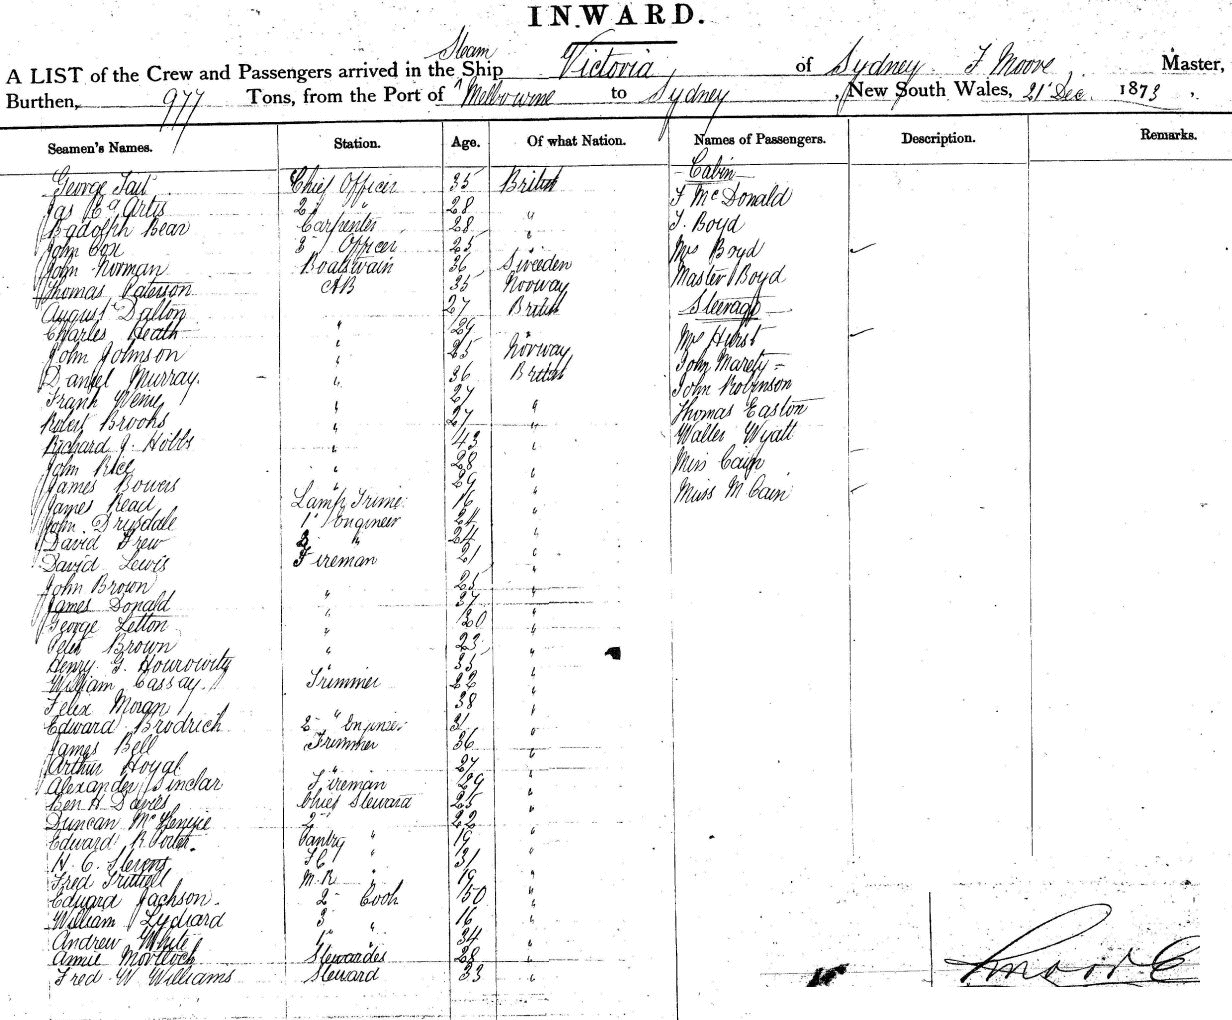 INWARD.
Steam
A LIST of the Crew and Passengers arrived in the Ship Victoria of Sydney F Moore, Master,
Burthen, 977 Tons, from the Port of Melbourne to Sydney, New South Wales, 21st Dec. 1873,
Seamen's Names. Station. Age. Of what Nation. Names of Passengers. Description. Remarks.
George Tait Chief Officer 35 British Cabin
Jas Ea Artis 2 " 28 " F McDonald
Badolph Bear Carpenter 28 " T. Boyd
John Cox 3 Officer 25 " Mrs Boyd
John Norman Boatswain 36 Sweeden Master Boyd
Thomas Paterson AB 35 Norway Steerage
August Dalton 27 British
Charles Heath " 29 " Mrs Hurst
John Johnson " 25 Norway John Marety
Daniel Murray. " 36 British John Robinson
Frank 27 " Thomas Easton
Robert Brooks " 27 " Walter Wyatt
Richard J. Hobbs " 43 " Miss Cain
John Rice " 28 " Miss M Cain
James Bowers " 29 "
James Read Lamp Trimer 16 "
John Drysdale 1st Engineer 24 "
David Frew 2 " 24 "
David Lewis Fireman 21 "
John Brown " 25 "
James Donald " 37 "
George Letton " 30 "
Peter Brown " 23 "
Henry G. Hourowity " 35 "
William Cassay. Trimmer 22 "
Felix Moran " 38 "
Edward Brodrich 2 Engineer 31 "
James Bell Trimmer 36 "
Arthur Hoyal " 27 "
Alexander Sinclar Fireman 29 "
Ben H Davies Chief Steward 25 "
Duncan 2 " 22 "
Edward R Porter. Pantry " 19 "
H. C. Stevens F.C. " 31 "
Fred M.R " 19 "
Edward Jackson. 2 Cook 50 "
William Lydiard 3 " 16 "
Andrew White 1st " 34 "
Annie Mortlock Stewardes 28 "
Fred W Williams Steward 33 "
F Moore